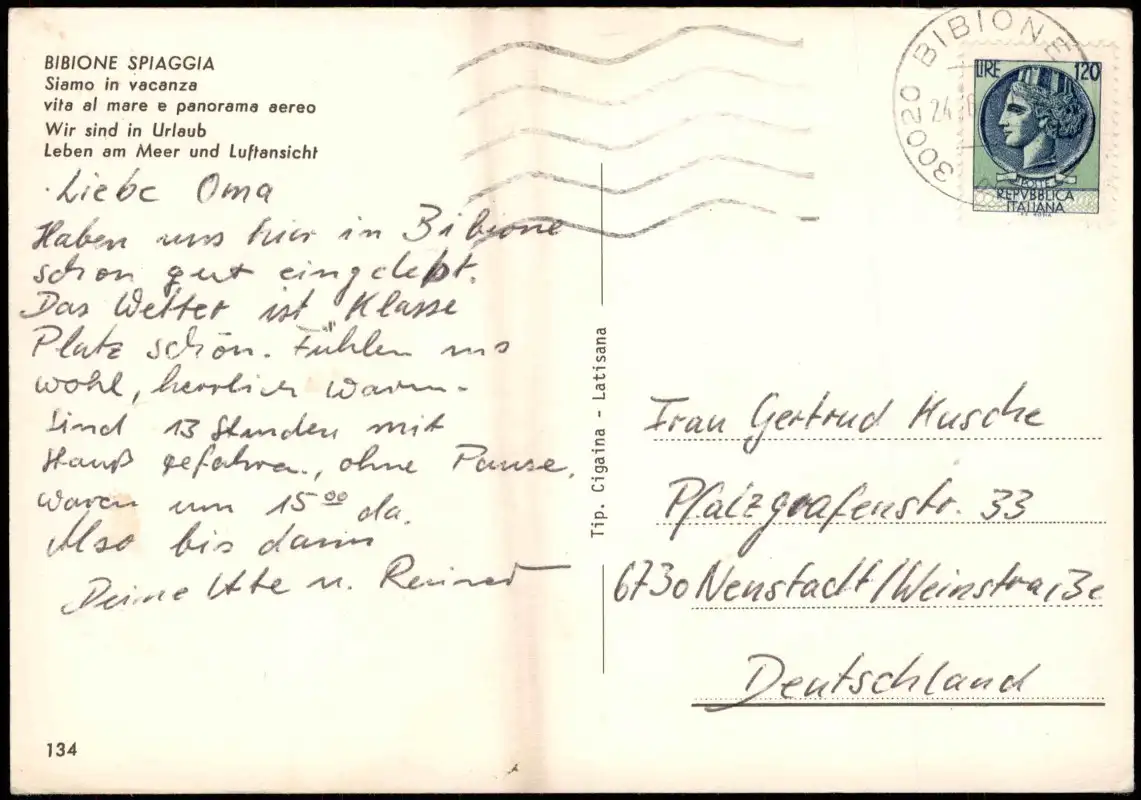 BIBIONE SPIAGGIA
Siamo in vacanza
vita al mare e panorama aereo
Wir sind in Urlaub
Leben am Meer und Luftansicht
Liebe Oma
Haben uns hier in Bibione
schon gut eingelebt.
Das Wetter ist Klasse
Platz schön. Fühlen uns
wohl, herrlich warm.
Sind 13 Stunden mit
gefahren, ohne Pause,
waren um 15 00 da.
Also bis dann
Deine Ute u.
134
Tip. Cigaina - Latisana
30020 BIBIONE
24.
LIRE 120
POSTE
REPVBBLICA
ITALIANA
Frau Gertrud Kusche
Pfalzgrafenstr. 33
6730 Neustadt/Weinstraße
Deutschland